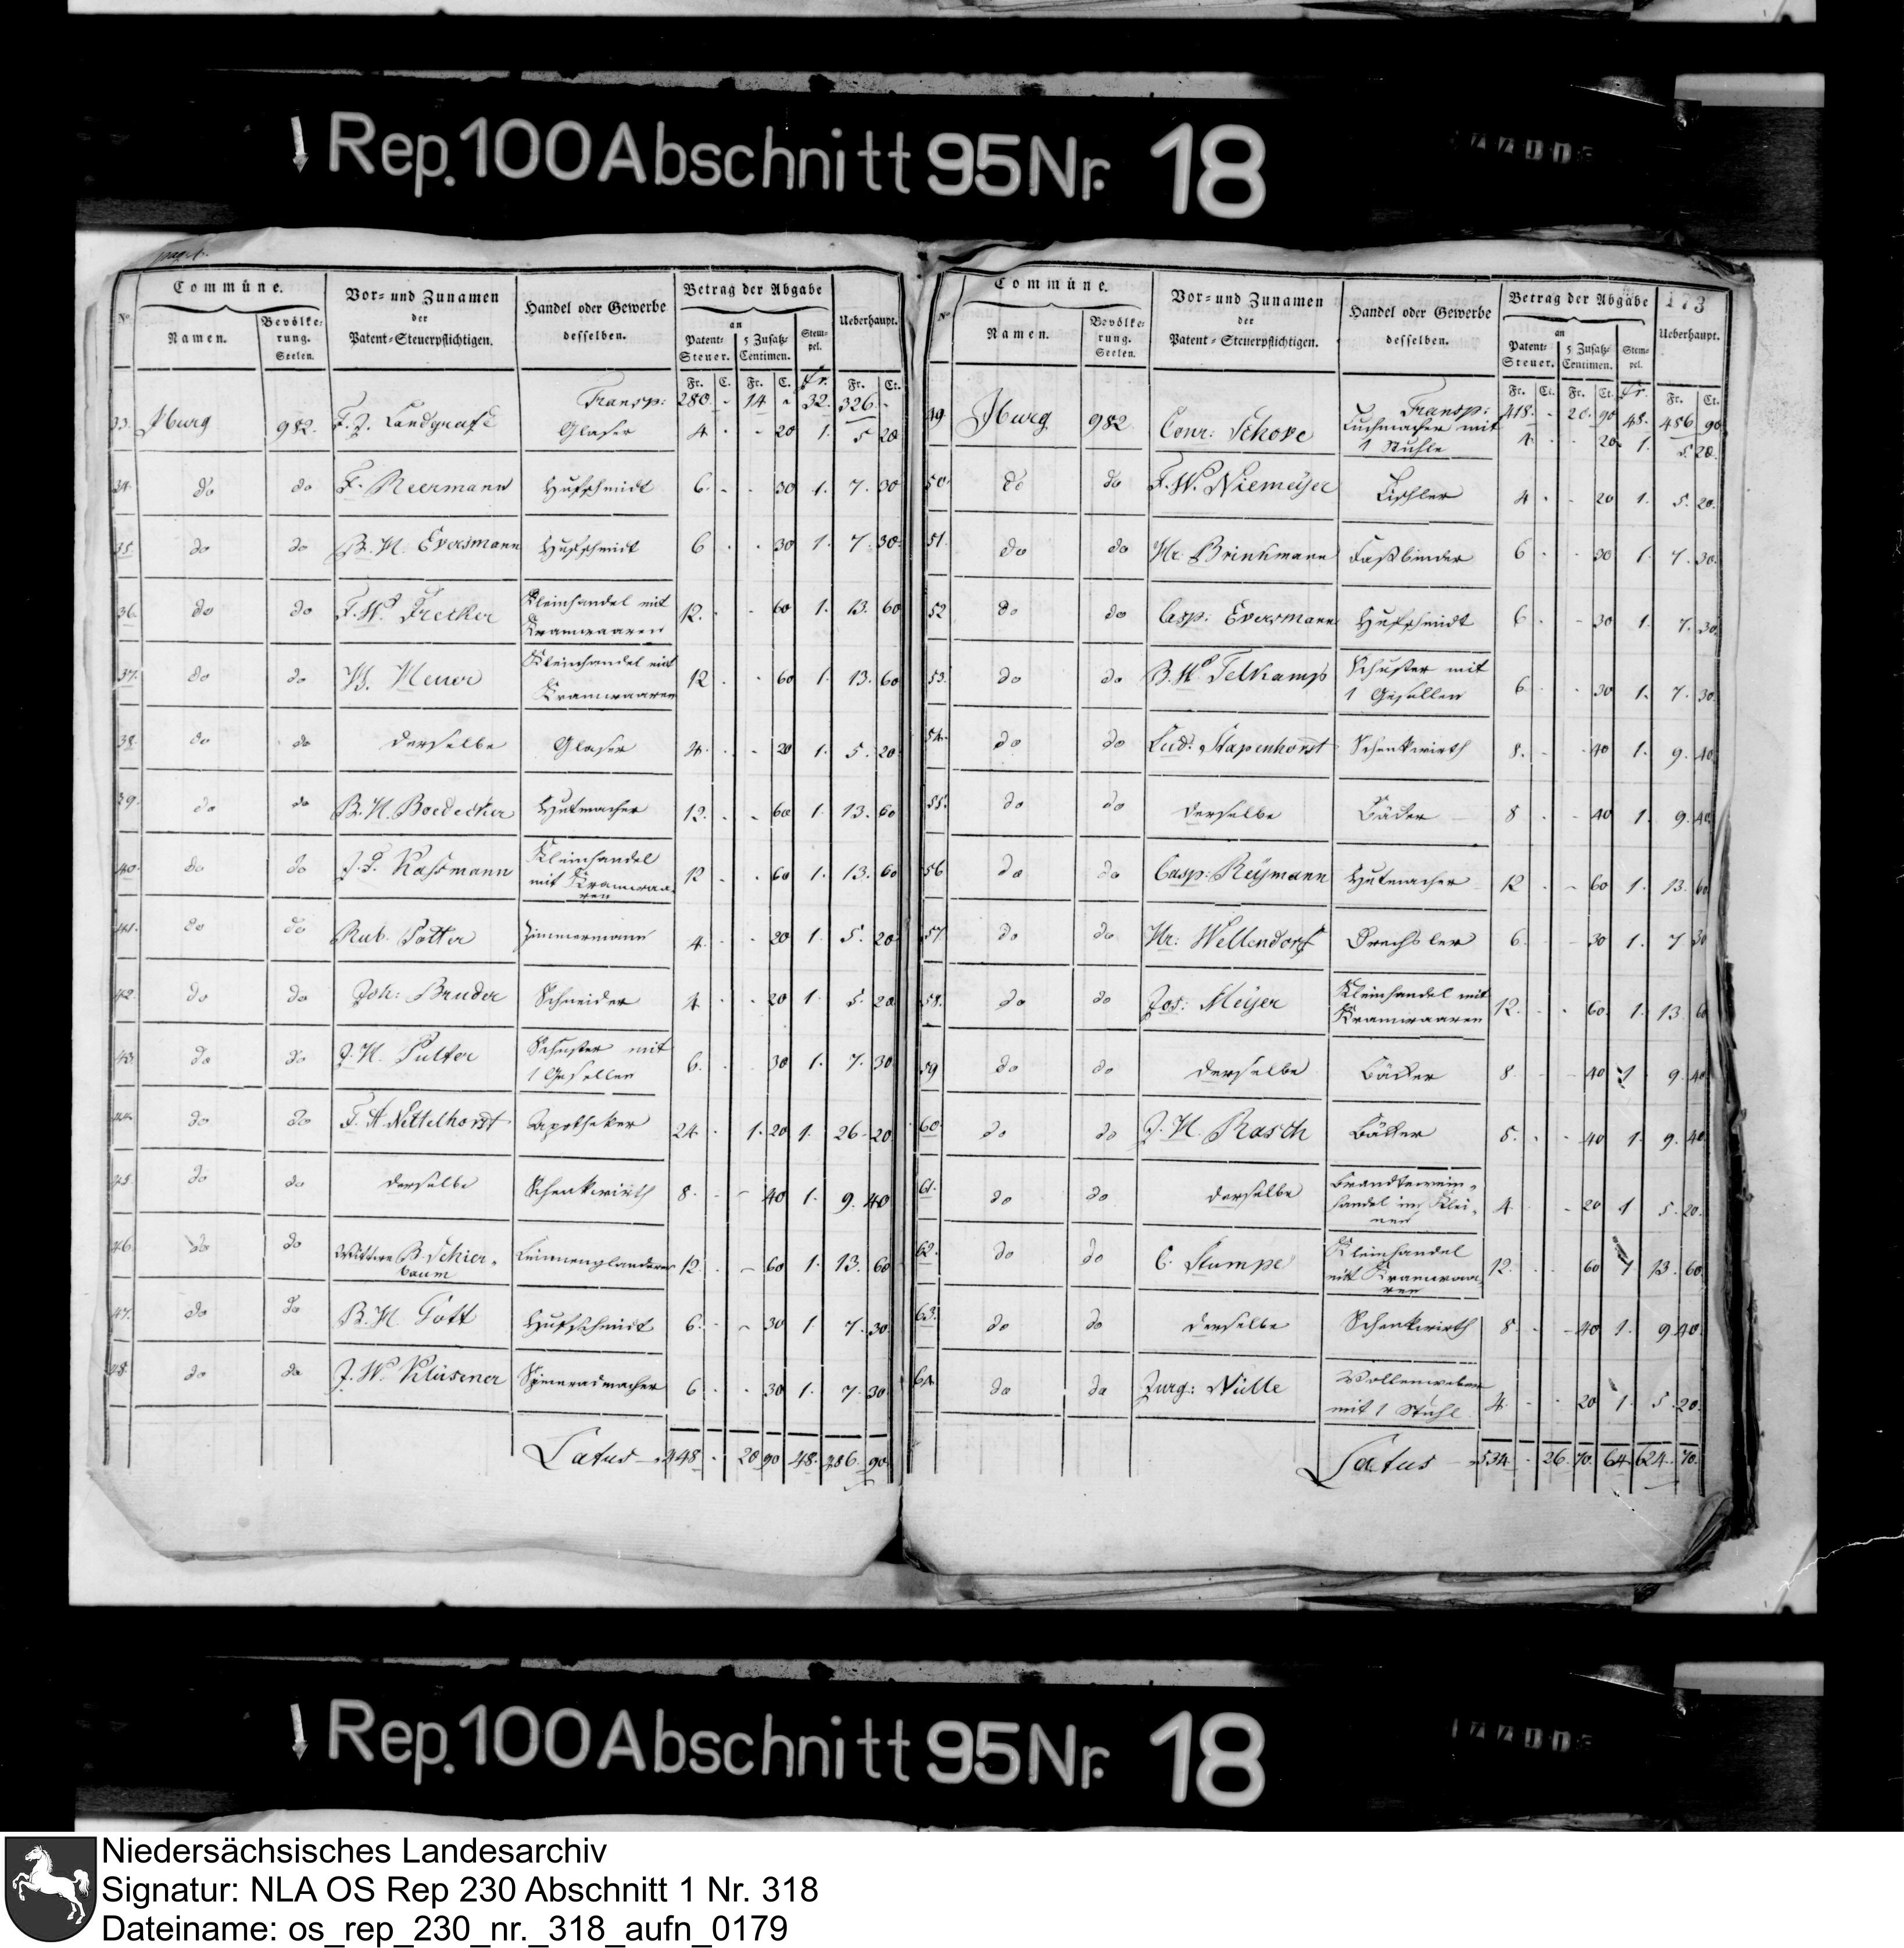 Rep. 100 Abschnitt 95 Nr. 18
pag. 1.
Commüne. Vor- und Zunamen der Patent-Steuerpflichtigen. Handel oder Gewerbe desselben. Betrag der Abgabe Ueberhaupt.
No. Namen. Bevölkerung. Seelen. an Patent-Steuer. 5 Zusatz-Centimen. Stempel.
Fr. C. Fr. C. Fr. Fr. Ct.
Transp: 280. - 14 - 32. 326. -
33. Iburg 982. F. J. Landgraf Glaser 4. - - 20 1. 5 20
34. do do F. Reermann Hufschmidt 6. - - 30 1. 7. 30
35. do do B. H. Eversmann Hufschmidt 6 - - 30 1. 7. 30.
36. do do F. Wd. Fretker Kleinhandel mit Kramwaaren 12. - - 60 1. 13. 60
37. do do Kleinhandel mit Kramwaaren 12 - - 60 1. 13. 60
38. do do derselbe Glaser 4. - - 20 1. 5. 20
39. do do B. H. Boedecker Hutmacher 12. - - 60 1. 13. 60
40. do do Kassmann Kleinhandel mit Kramwaaren 12 - - 60 1. 13. 60
41. do do Rub. Potter Zimmermann 4. - - 20 1. 5. 20
42. do do Joh: Bruder Schneider 4. - - 20 1. 5. 20
43. do do J. H. Pulter Schuster mit 1 Gesellen 6. - - 30 1. 7. 30
44. do do F. A. Nettelhorst Apotheker 24. - 1. 20 1. 26. 20
45. do do derselbe Schenkwirth 8. - - 40 1. 9. 40
46. do do Wittwe B. Schierbaum 12. - - 60 1. 13. 60
47. do do B. H. Gott Hufschmidt 6. - - 30 1. 7. 30
48. do do J. Wd. Klüsener Spinnradmacher 6 - - 30 1. 7. 30
Latus 448. - 20 90 48. 486. 90
173
Commüne. Vor- und Zunamen der Patent-Steuerpflichtigen. Handel oder Gewerbe desselben. Betrag der Abgabe Ueberhaupt.
No. Namen. Bevölkerung. Seelen. an Patent-Steuer. 5 Zusatz-Centimen. Stempel.
Fr. Ct. Fr. Ct. Fr. Fr. Ct.
Transp: 418. - 20. 90 48. 486 90
49 Iburg 982 Conr: Schove Tuchmacher mit 1 Stuhle 4. - - 20. 1. 5. 20.
50. do do F. Wd. Niemeÿer Tischler 4 - - 20 1. 5. 20.
51. do do Hr: Brinkmann Faßbinder 6 - - 30 1. 7. 30.
52 do do Casp: Eversmann Hufschmidt 6 - - 30 1. 7. 30
53. do do B. Wd. Telkamps Schuster mit 1 Gesellen 6. - - 30 1. 7. 30
54. do do Lud: Stapenhorst Schenkwirth 8. - - 40 1. 9. 40
55. do do derselbe Bäcker 8 - - 40 1. 9. 40
56 do do Casp: Reÿmann Hutmacher 12 - - 60 1. 13. 60
57. do do Hr: Wellendorf Drechsler 6. - - 30 1. 7 30
58. do do Jos: Meÿer Kleinhandel mit Kramwaaren 12. - - 60. 1. 13 60
59 do do derselbe Bäcker 8. - - 40 1 9. 40
60. do do J. H. Rasch Bäcker 8. - - 40 1. 9. 40
61. do do derselbe Brandtewein-handel im Kleinen 4 - - 20 1 5. 20.
62. do do C. Stumpe Kleinhandel mit Kramwaaren 12. - - 60 1 13. 60.
63. do do derselbe Schenkwirth 8. - - 40 1. 9 40.
64. do do Jurg: Nülle Wollenweber mit 1 Stuhl 4. - - 20 1. 5. 20.
Latus 534. - 26. 70. 64. 624. 70.
Rep. 100 Abschnitt 95 Nr. 18
Niedersächsisches Landesarchiv
Signatur: NLA OS Rep 230 Abschnitt 1 Nr. 318
Dateiname: os_rep_230_nr._318_aufn_0179